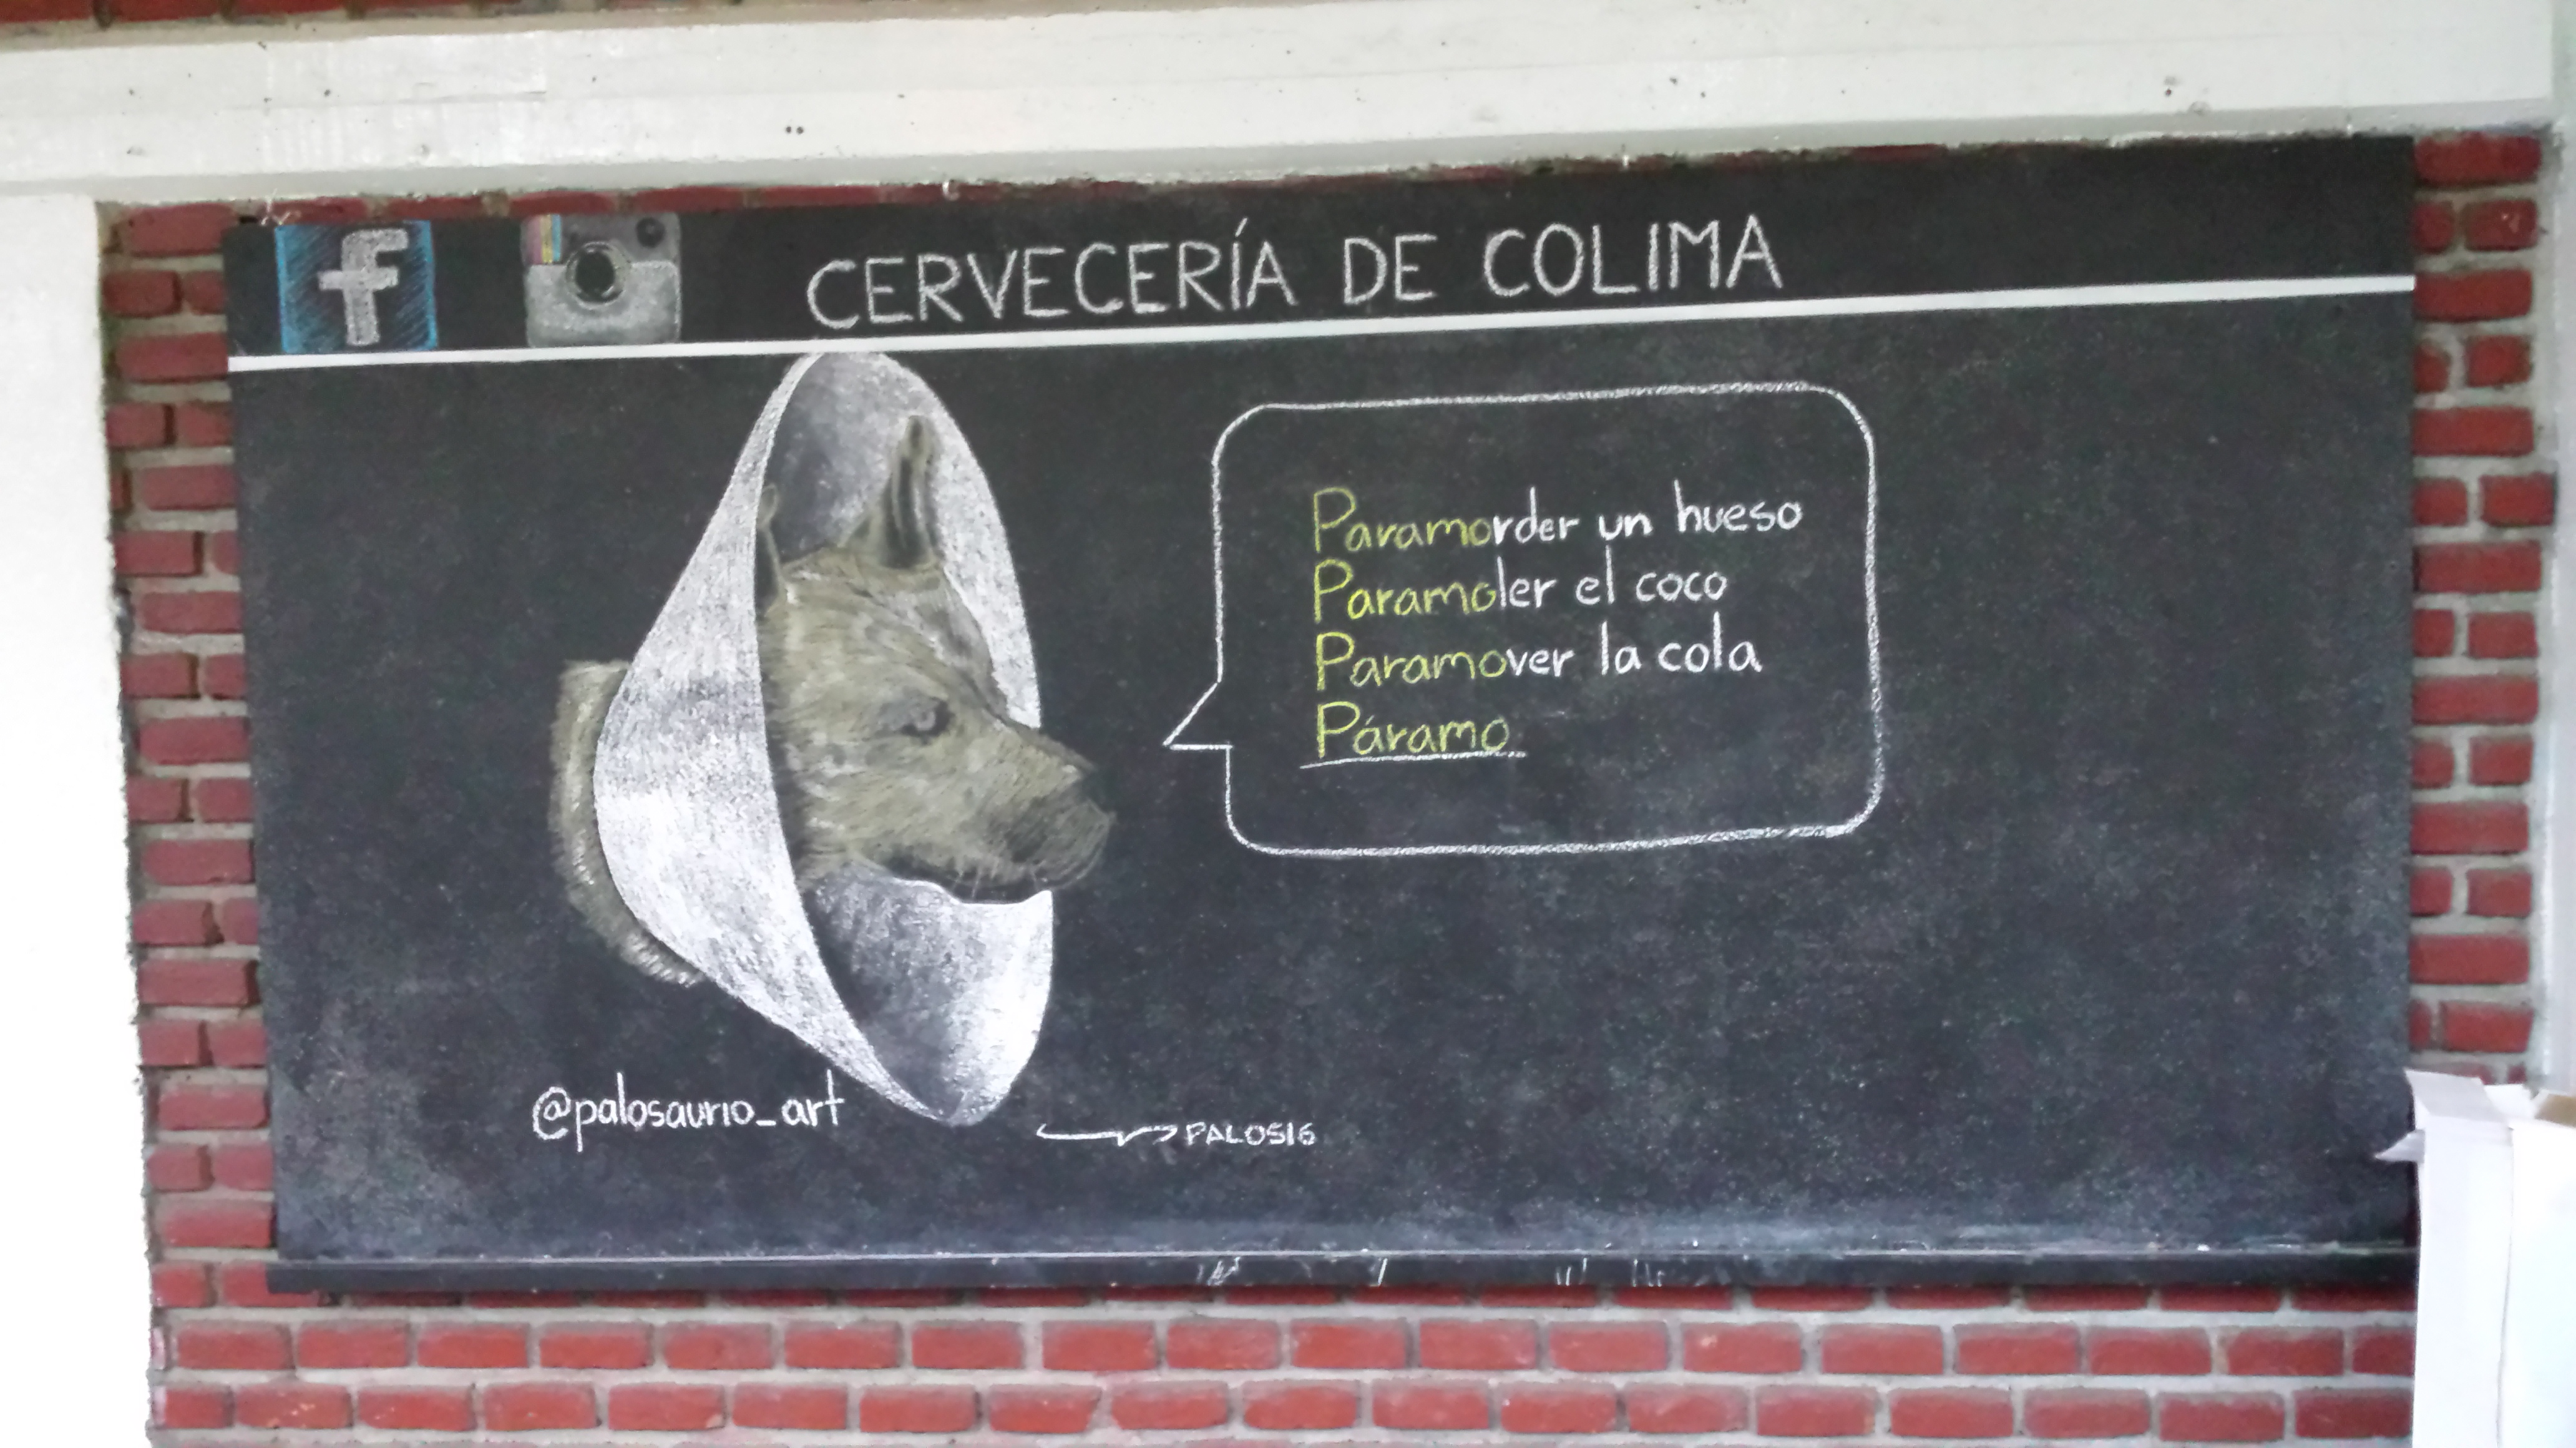 f
CERVECERÍA DE COLIMA
Paramorder un hueso
Paramoler el coco
Paramover la cola
Páramo
@palosaurio_art
PALOS16